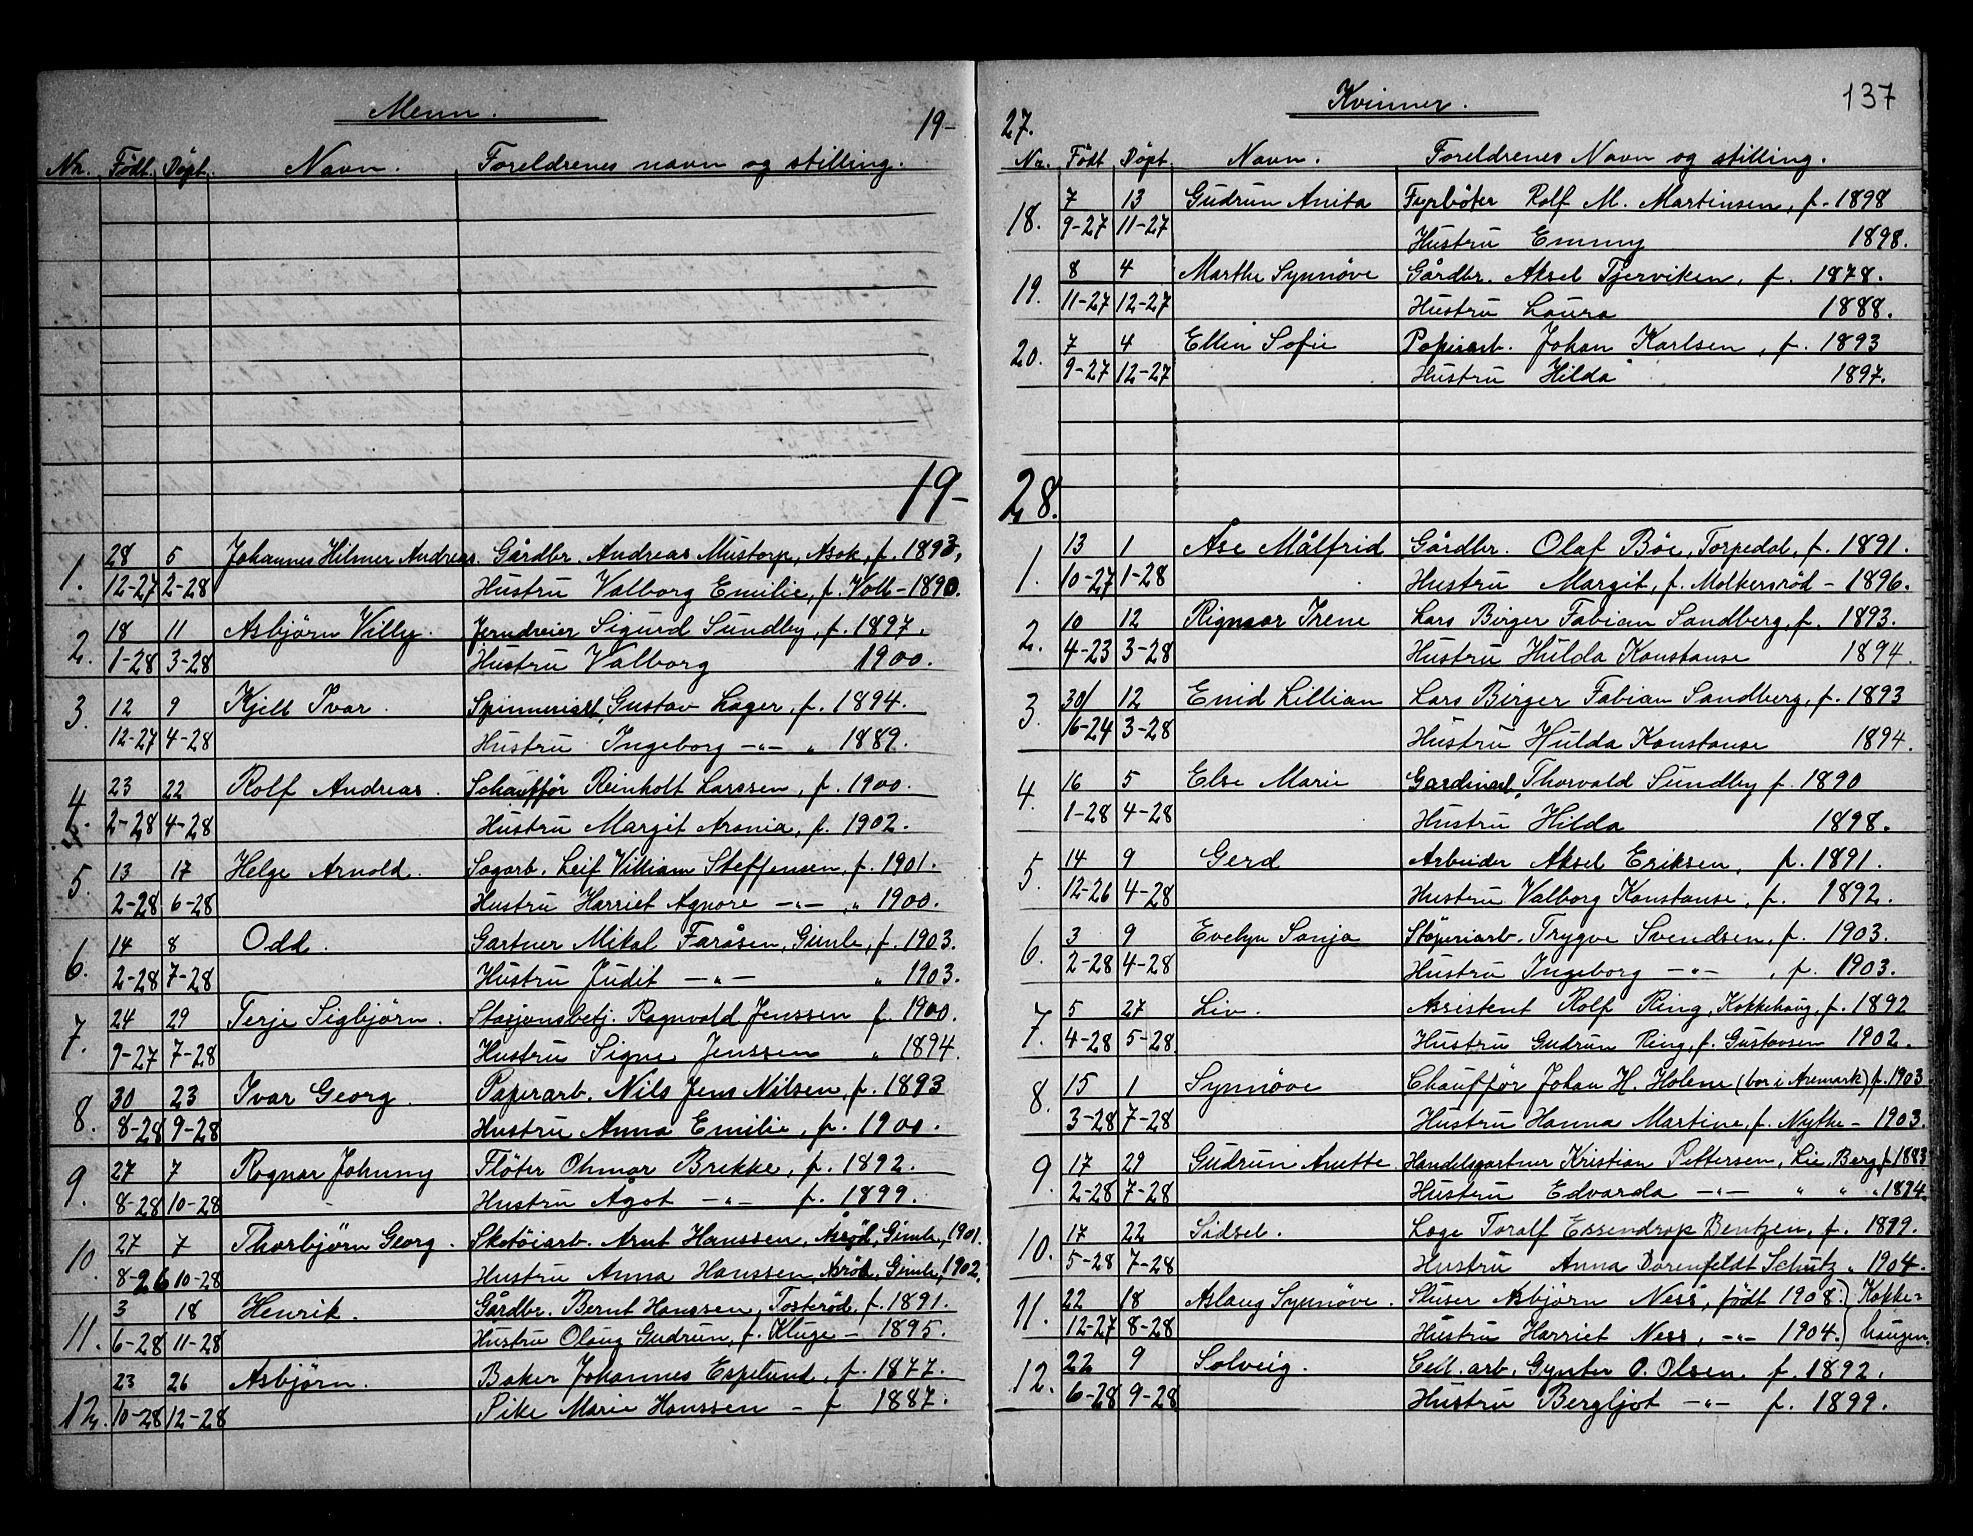 Menn.
19-
Nr. Födt. Döpt. Navn. Foreldrenes navn og stilling.
19-
1. 28 5 Johannes Hilmer Andreas. Gårdbr. Andreas Mustorp, Asak, f. 1893.
12-27 2-28 Hustru Valborg Emilie, f. Voll - 1890.
2. 18 11 Asbjörn Villy. Jerndreier Sigurd Sundby, f. 1897.
1-28 3-28 Hustru Valborg 1900.
3. 12 9 Kjell Ivar. Gustav Lager, f. 1894.
12-27 4-28 Hustru Ingeborg -"- " 1889.
4. 23 22 Rolf Andreas. Schaufför Reinholt Larssen, f. 1900.
2-28 4-28 Hustru Margit Aronia, f. 1902.
5. 13 17 Helge Arnold. Sagarb. Leif Villiam Steffensen, f. 1901.
2-28 6-28 Hustru Harriet Agnore -"- " 1900.
6. 14 8 Odd. Gartner Mikal Faråsen, Gimle, f. 1903.
2-28 7-28 Hustru Judit -"- " 1903.
7. 24 29 Terje Sigbjörn. Stasjonsbetj. Ragnvald Jenssen f. 1900.
9-27 7-28 Hustru Signe Jenssen " 1894.
8. 30 23 Ivar Georg. Papirarb. Nils Jens Nilsen, f. 1893
8-28 9-28 Hustru Anna Emilie, f. 1900.
9. 27 7 Ragnar Johnny Flöter Ohmar Brekke, f. 1892.
8-28 10-28 Hustru Ågot -"- f. 1899.
10. 27 7 Thorbjörn Georg. Skotöiarb. Arnt Hanssen, Asröd, Gimle, 1901.
8-26 10-28 Hustru Anna Hanssen, Asröd, Gimle, 1902.
11. 3 18 Henrik. Gårdbr. Bernt Hanssen, Tosteröd, f. 1891.
6-28 11-28 Hustru Olaug Gudrun, f. Kluge - 1895.
12. 23 26 Asbjörn. Baker Johannes Espelund, f. 1877.
10-28 12-28 Pike Marie Hanssen - f 1887.
Kvinner.
137
27.
Nr. Födt Döpt. Navn. Foreldrenes Navn og stilling.
18. 7 13 Gudrun Anita Fyrböter Rolf M. Martinsen, f. 1898
9-27 11-27 Hustru Emmy 1898.
19. 8 4 Marthe Synnöve Gårdbr. Aksel Tjerviken, f. 1878.
11-27 12-27 Hustru Laura 1888.
20. 7 4 Ellin Sofie Papirarb. Johan Karlsen, f. 1893
9-27 12-27 Hustru Hilda 1897.
28.
1. 13 1 Åse Målfrid Gårdbr. Olaf Böe, Torpedal, f. 1891.
10-27 1-28 Hustru Margit, f. Molkersröd - 1896.
2. 10 12 Rigmor Irene Lars Birger Fabian Sandberg, f. 1893.
4-23 3-28 Hustru Hulda Konstanse 1894.
3. 30/ 12 Enid Lillian Lars Birger Fabian Sandberg, f. 1893
6-24 3-28 Hustru Hulda Konstanse 1894.
4. 16 5 Else Marie Thorvald Sundby f. 1890
1-28 4-28 Hustru Hilda 1898.
5. 14 9 Gerd Arbeider Aksel Eriksen, f. 1891.
12-26 4-28 Hustru Valborg Konstanse, f. 1892.
6. 3 9 Evelyn Sonja Stöperiarb. Trygve Svendsen, f. 1903.
2-28 4-28 Hustru Ingeborg -"- , f. 1903.
7. 5 27 Liv. Assistent Rolf Ring, Kokkehaug, f. 1892
4-28 5-28 Hustru Gudrun Ring, f. Gustavsen 1902.
8. 15 1 Synnöve Chauffør Johan H. Holene (bor i Aremark) f. 1903
3-28 7-28 Hustru Hanna Martine, f. Nythe - 1903.
9. 17 29 Gudrun Anette. Handelsgartner Kristian Pettersen, Lie, Berg, f 1883
2-28 7-28 Hustru Edvarda -"- " " " 1894.
10. 17 22 Sidsel. Læge Toralf Essendrop Bentzen, f. 1899.
5-28 7-28 Hustru Anna Dorenfeldt Schutz " 1904.
11. 22 18 Aslaug Synnöve. Sluser Asbjörn Ness, födt 1908. } Kokke=
12-27 8-28 Hustru Harriet Ness, -"- 1904. } haugen.
12. 22 9 Solveig. Cell. arb. Gynter O. Olsen. f. 1892.
6-28 9-28 Hustru Bergljot -"- f. 1899.